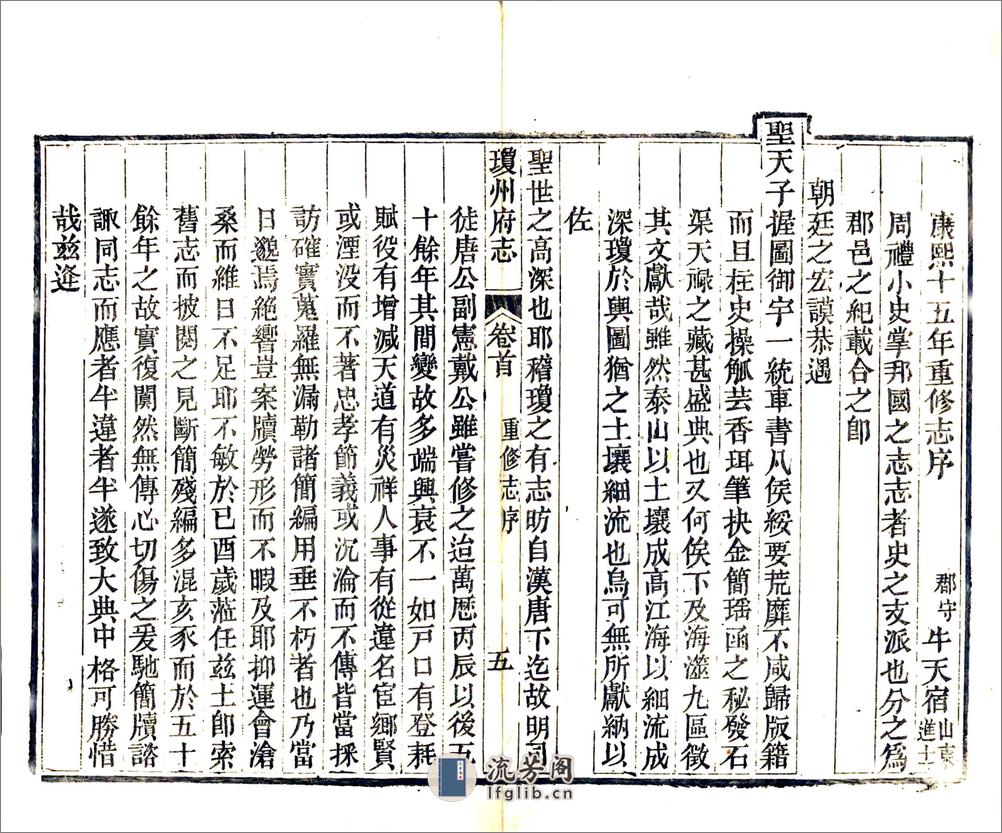 康熙十五年重修志序 郡守牛天宿山東進士
周禮小史掌邦國之志志者史之支派也分之爲
郡邑之紀載合之卽
朝廷之宏謨恭遇
聖天子握圖御宇一統車書凡侯綏要荒靡不咸歸版籍
而且柱史操觚芸香珥筆抉金簡瑤函之秘發石
渠天祿之藏甚盛典也又何俟下及海澨九區徵
其文獻哉雖然泰山以土壤成高江海以細流成
深瓊於輿圖猶之土壤細流也烏可無所獻納以
佐
聖世之高深也耶稽瓊之有志昉自漢唐下迄故明司
瓊州府志 卷首 重修志序 五
徒唐公副憲戴公雖嘗修之迨萬曆丙辰以後五
十餘年其間變故多端興衰不一如戸口有登耗
賦役有增減天道有災祥人事有從違名宦鄉賢
或湮没而不著忠孝節義或沉淪而不傳皆當採
訪確實蒐羅無漏勒諸簡編用垂不朽者也乃當
日邈焉絕響豈案牘勞形而不暇及耶抑運會滄
桑而維日不足耶不敏於已酉歲蒞任兹土卽索
舊志而披閱之見斷簡殘編多混亥豕而於五十
餘年之故實復闃然無傳心切傷之爰馳簡牘諮
諏同志而應者半違者半遂致大典中格可勝惜
哉兹逢
流芳阁
lfglib.cn